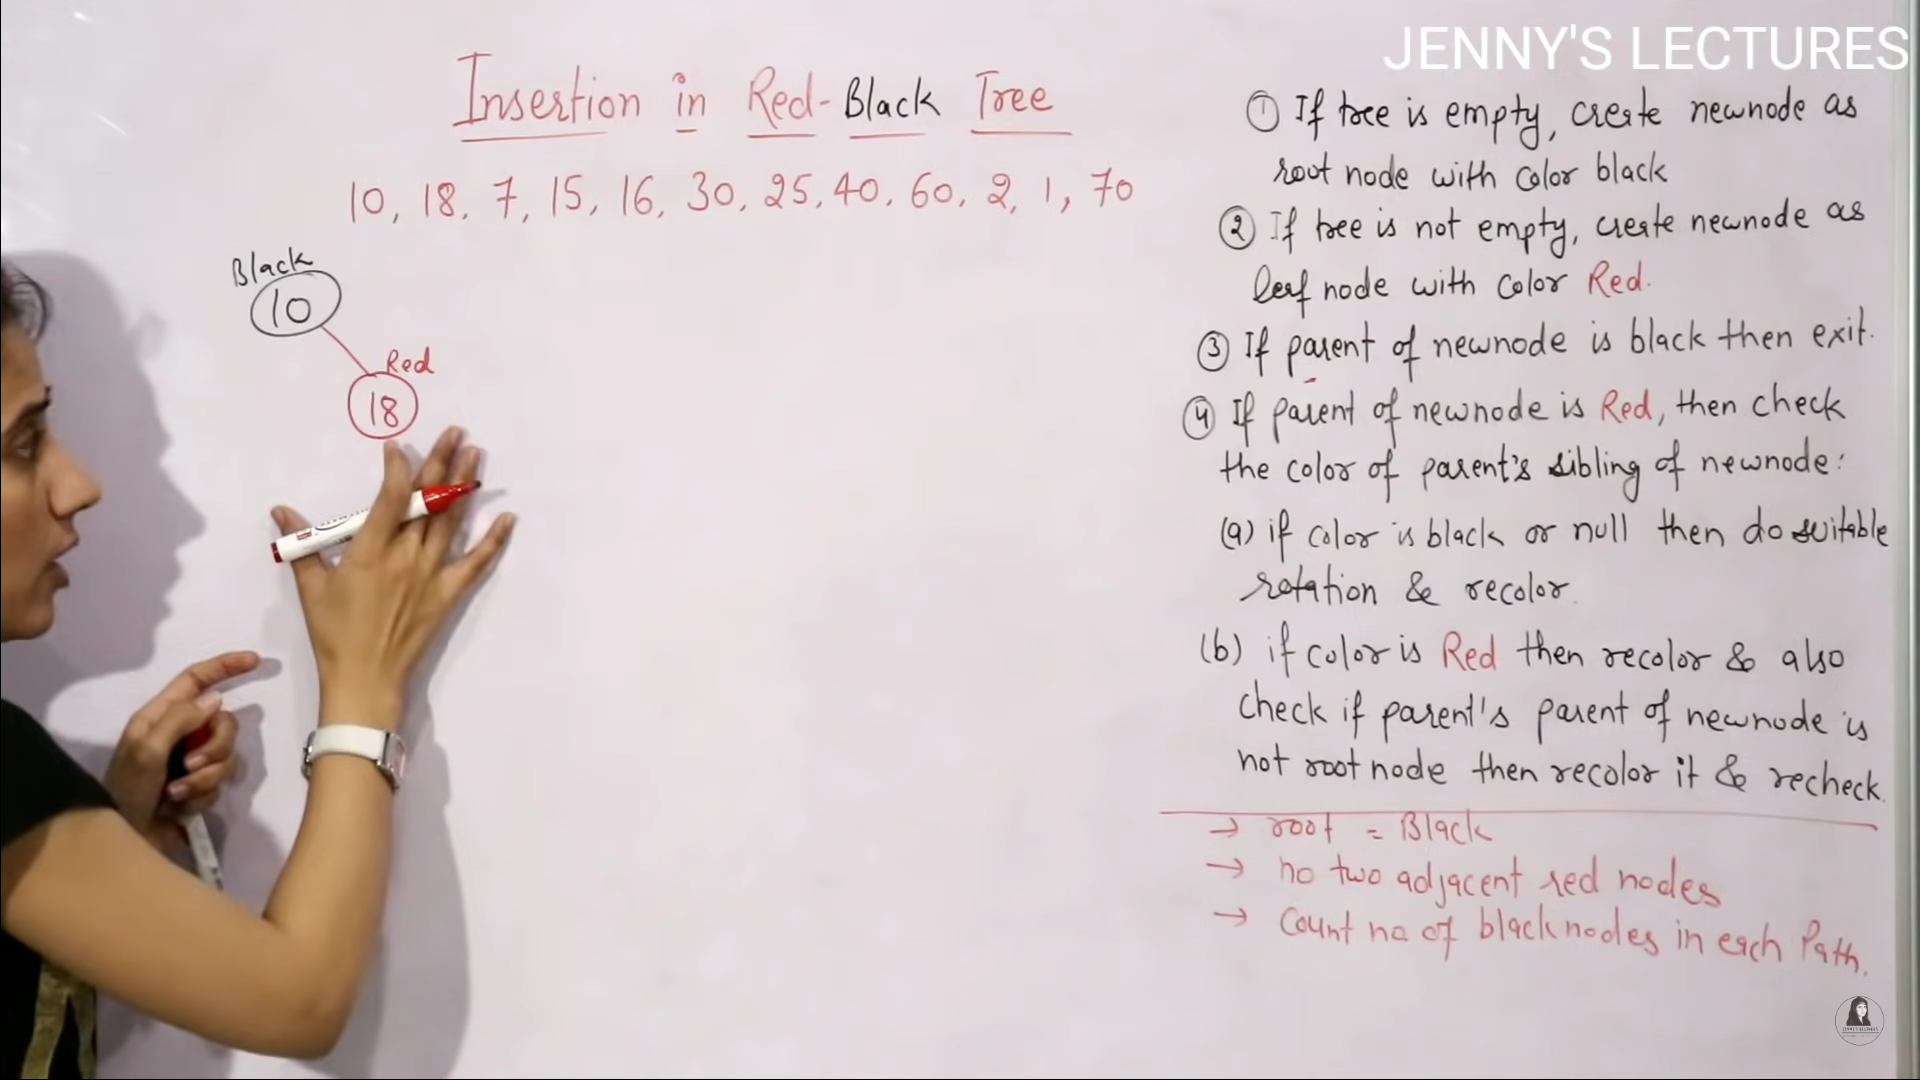 JENNY'S LECTURES
Insertion in Red-Black Tree
10, 18, 7, 15, 16, 30, 25, 40, 60, 2, 1, 70
Black
10
Red
18
① If tree is empty, create newnode as
root node with color black
② If tree is not empty, create newnode as
leaf node with color Red.
③ If parent of newnode is black then exit.
④ If parent of newnode is Red, then check
the color of parent's sibling of newnode:
(a) if color is black or null then do suitable
rotation & recolor.
(b) if color is Red then recolor & also
check if parent's parent of newnode is
not root node then recolor it & recheck.
→ root = Black
→ no two adjacent red nodes
→ count no of black nodes in each Path.